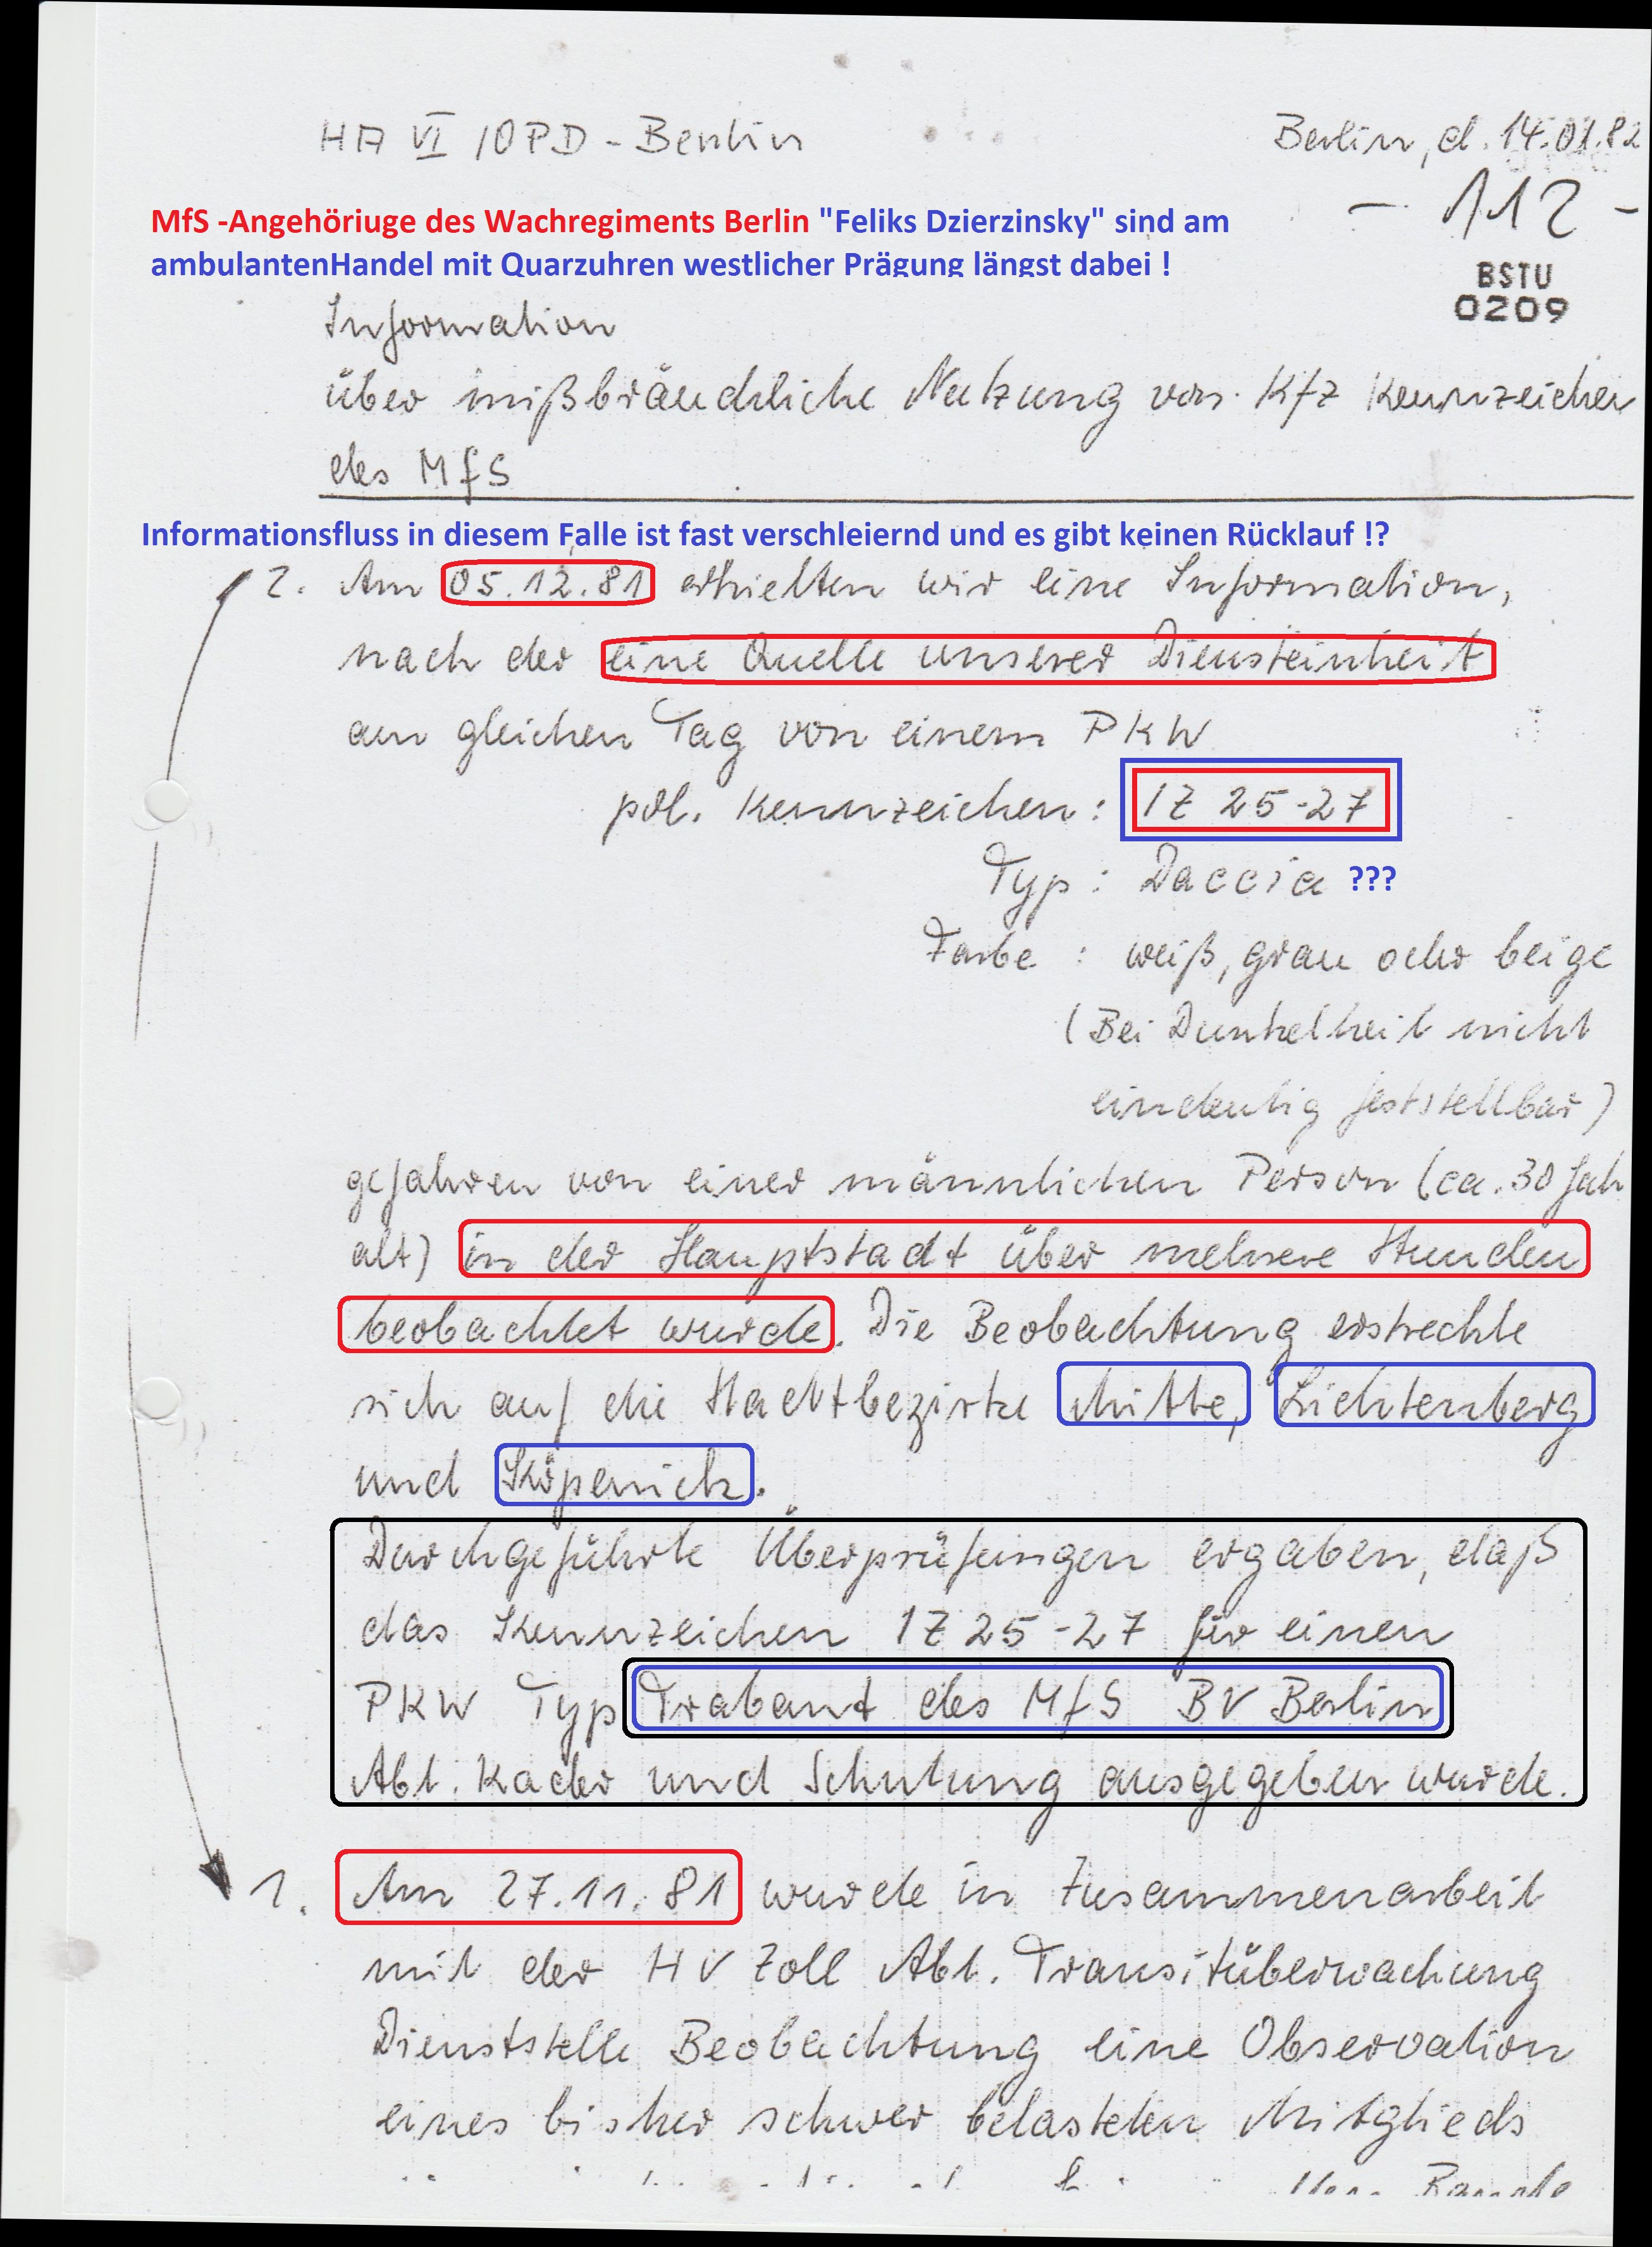 HA VI / OPD - Berlin
Berlin, d. 14.01.82
- 112 -
MfS -Angehöriuge des Wachregiments Berlin "Feliks Dzierzinsky" sind am
ambulantenHandel mit Quarzuhren westlicher Prägung längst dabei !
BSTU
0209
Information
über mißbräuchliche Nutzung von Kfz Kennzeichen
des MfS
Informationsfluss in diesem Falle ist fast verschleiernd und es gibt keinen Rücklauf !?
2. Am 05.12.81 erhielten wir eine Information,
nach der eine Quelle unserer Diensteinheit
am gleichen Tag von einem PKW
pol. Kennzeichen: IZ 25-27
Typ: Daccia ???
Farbe : weiß, grau oder beige
(Bei Dunkelheit nicht
eindeutig feststellbar)
gefahren von einer männlichen Person (ca. 30 Jah
alt) in der Hauptstadt über mehrere Stunden
beobachtet wurde. Die Beobachtung erstreckte
sich auf die Stadtbezirke Mitte, Lichtenberg
und Köpenick.
Durchgeführte Überprüfungen ergaben, daß
das Kennzeichen IZ 25-27 für einen
PKW Typ Trabant des MfS BV Berlin
Abt. Kader und Schulung ausgegeben wurde.
1. Am 27.11.81 wurde in Zusammenarbeit
mit der HV Zoll Abt. Transitüberwachung
Dienststelle Beobachtung eine Observation
eines bisher schwer belasteten Mitglieds